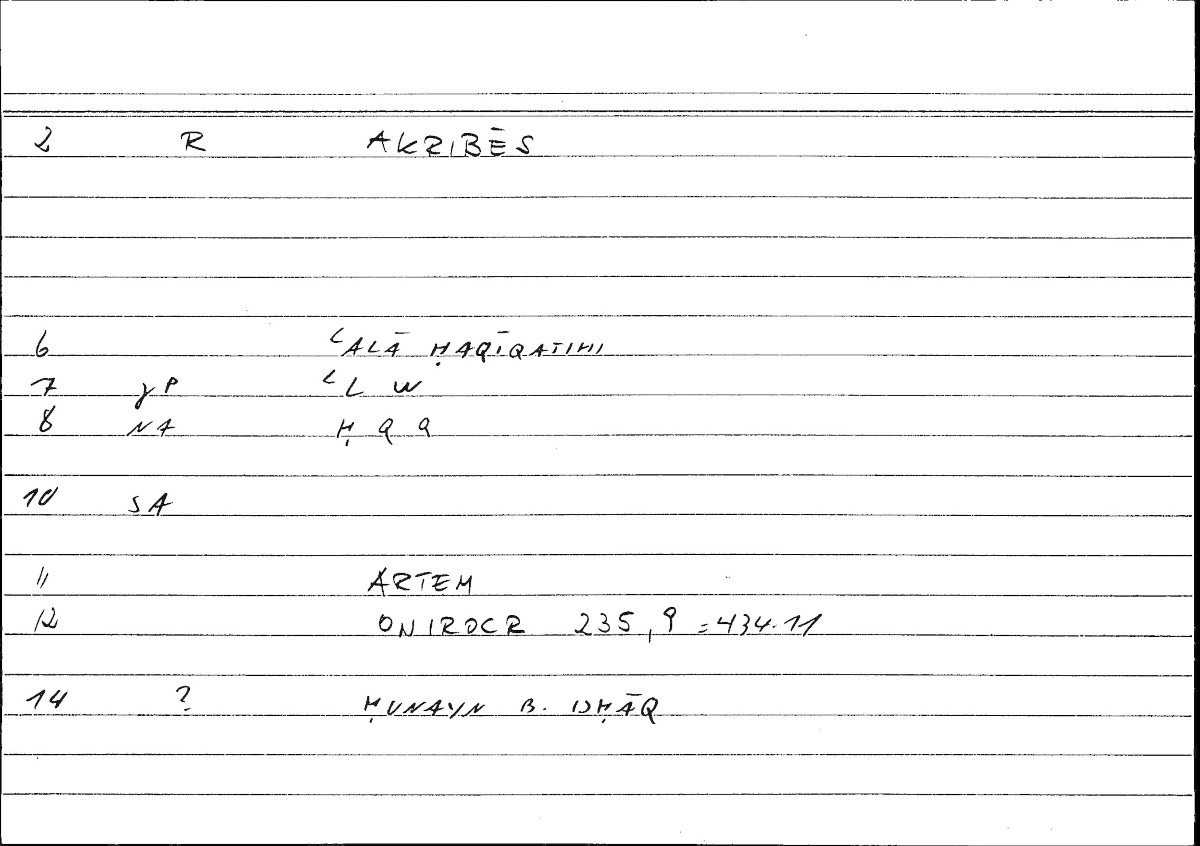 2 R AKRIBĒS
6 ʿALĀ ḤAQĪQATIHI
7 γP ʿL W
8 NA Ḥ Q Q
10 SA
11 ARTEM
12 ONIROCR 235,9 =434.11
14 ? ḤUNAYN B. ISḤĀQ